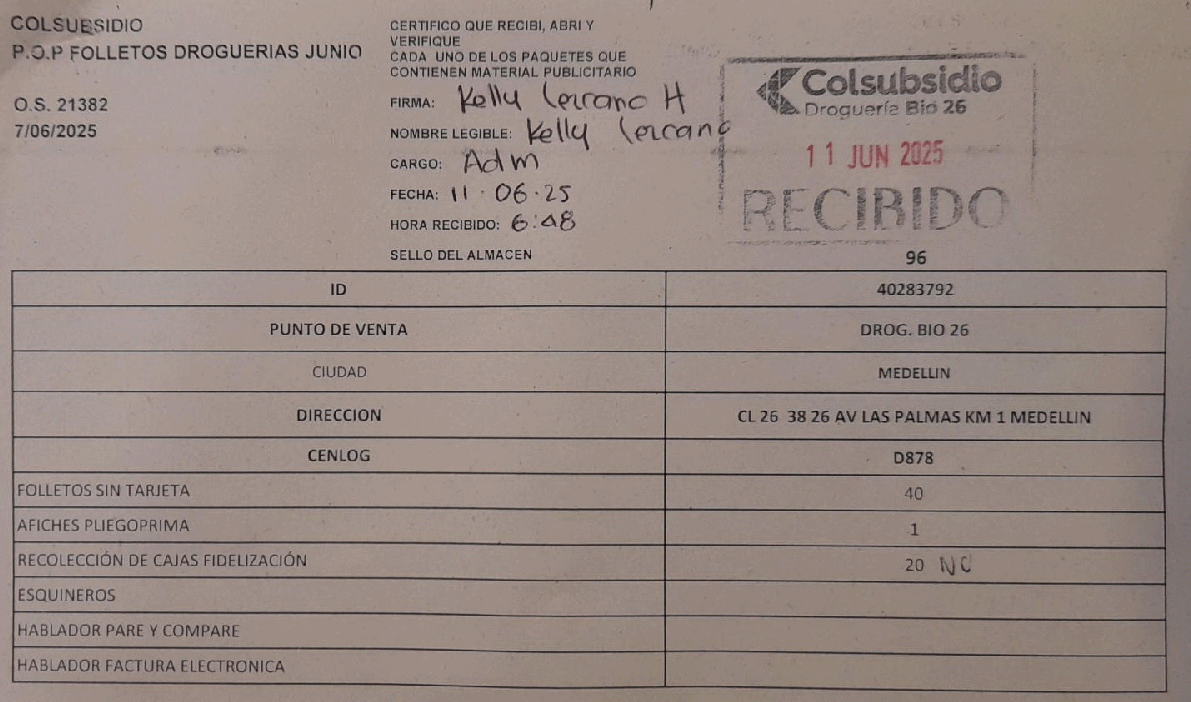 COLSUBSIDIO
P.O.P FOLLETOS DROGUERIAS JUNIO
O.S. 21382
7/06/2025
CERTIFICO QUE RECIBI, ABRI Y
VERIFIQUE
CADA UNO DE LOS PAQUETES QUE
CONTIENEN MATERIAL PUBLICITARIO
FIRMA: Kelly Lercano H
NOMBRE LEGIBLE: Kelly Lercano
CARGO: Adm
FECHA: 11.06.25
HORA RECIBIDO: 6:48
SELLO DEL ALMACEN
Colsubsidio
Droguería Bio 26
11 JUN 2025
RECIBIDO
96
ID 40283792
PUNTO DE VENTA DROG. BIO 26
CIUDAD MEDELLIN
DIRECCION CL 26 38 26 AV LAS PALMAS KM 1 MEDELLIN
CENLOG D878
FOLLETOS SIN TARJETA 40
AFICHES PLIEGOPRIMA 1
RECOLECCIÓN DE CAJAS FIDELIZACIÓN 20 NC
ESQUINEROS
HABLADOR PARE Y COMPARE
HABLADOR FACTURA ELECTRONICA